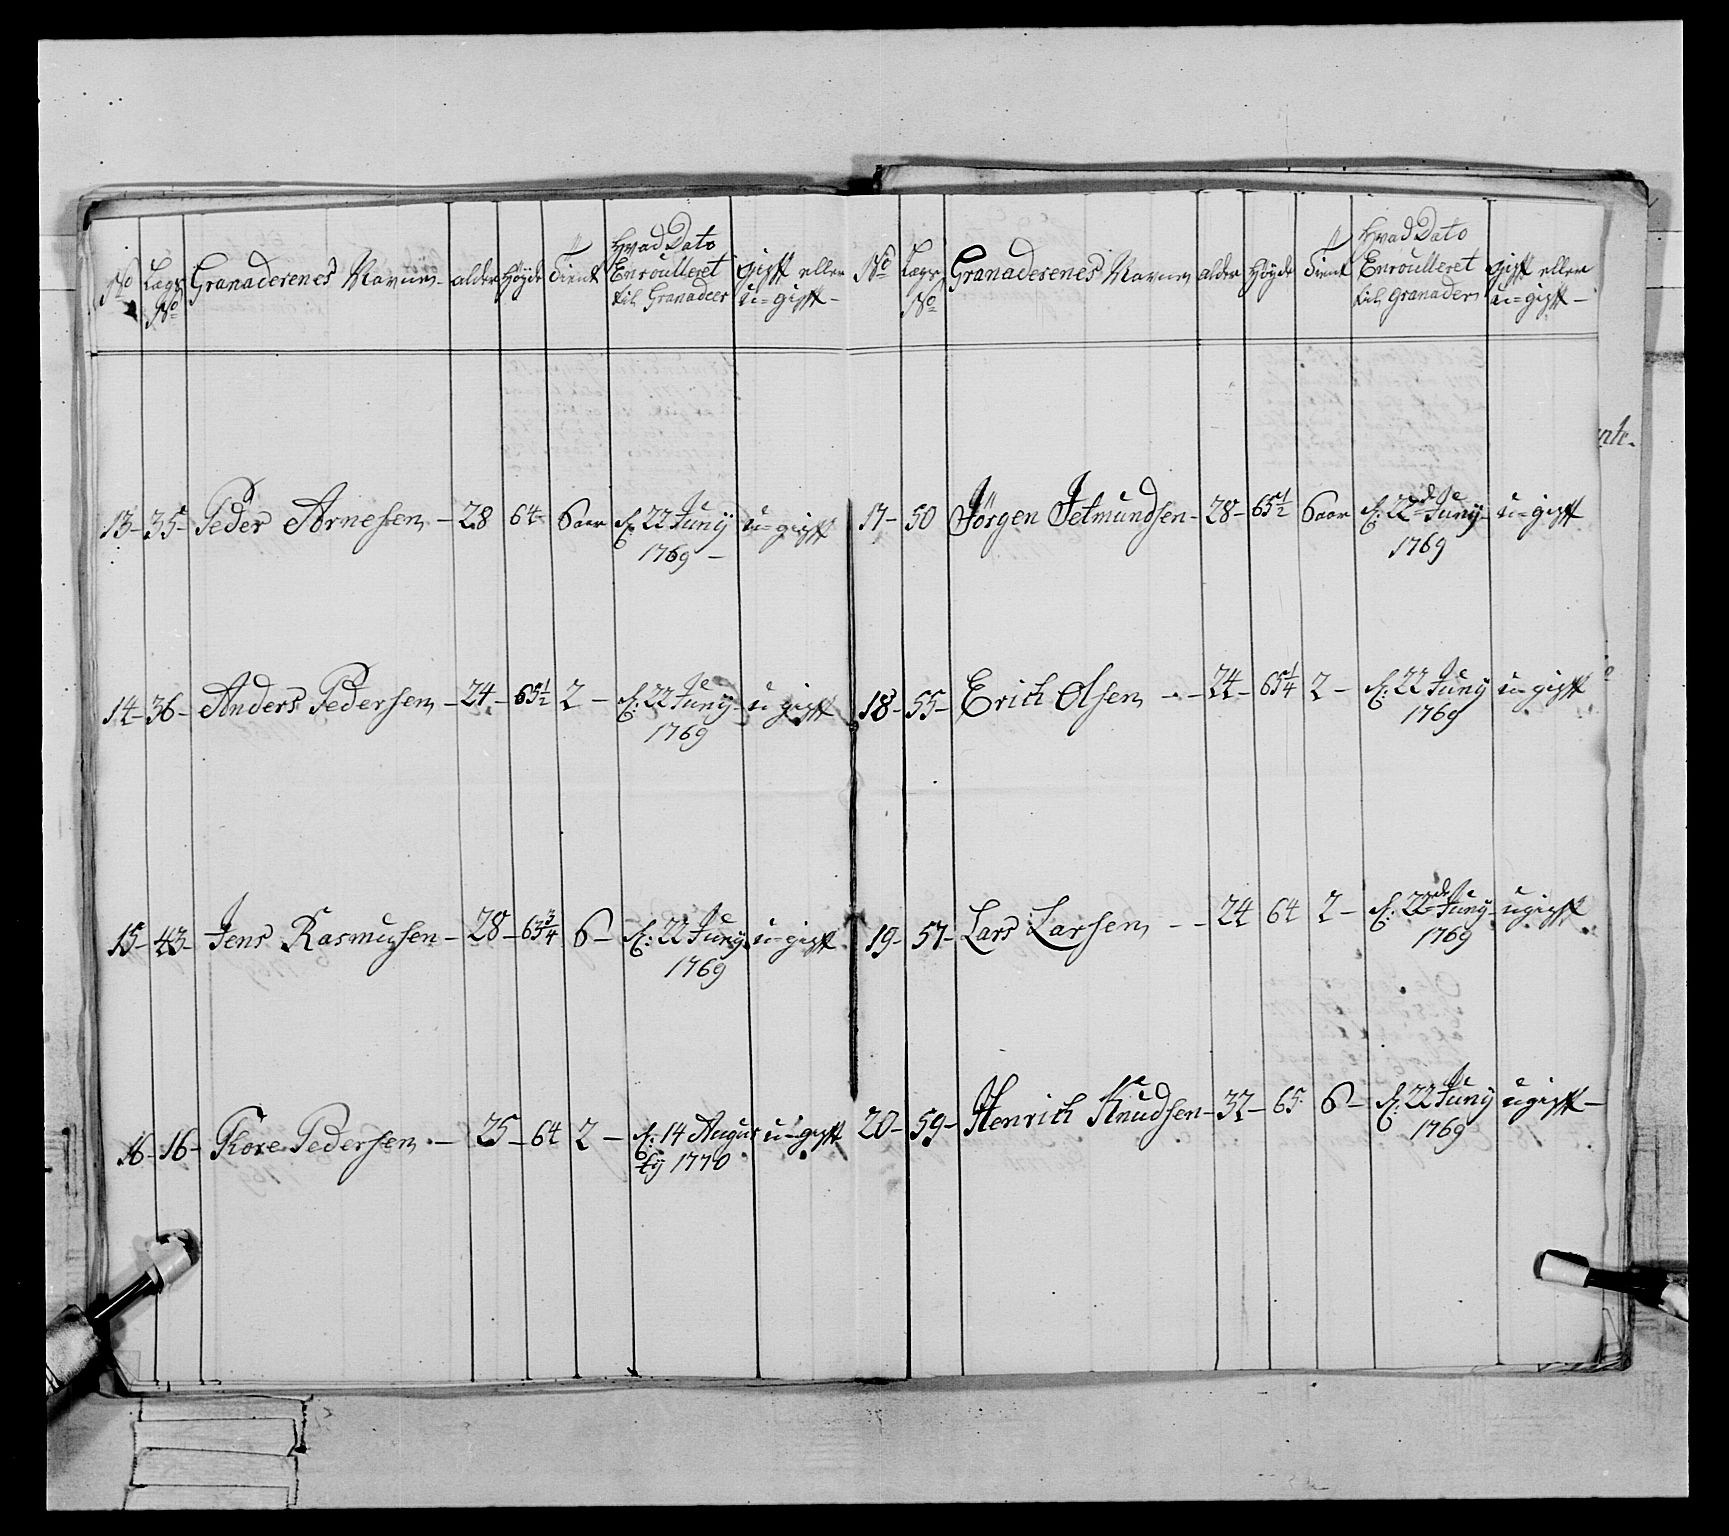 No Lægs No Granaderenes Navne - alder Høyde Tient Hvad Dato Enroulleret til Granadeer gift eller u=gift -
13 - 35 - Peder Arnesen - 28 64 - 6 aar d: 22 Juny 1769 - u=gift
14 - 36 - Anders Pedersen - 24 - 65½ 2 - d: 22 Juny 1769 u gift
15 - 43 - Jens Rasmusen - 28 - 63¾ 6 - d: 22 Juny 1769 u=gift
16 - 16 - Tore Pedersen - 25 - 64 2 - d: 14 Augusty 1770 u=gift
No Lægs No Granaderenes Navne alder Høyde Tient Hvad Dato Enroulleret til Granadeer gift eller u=gift -
17 - 50 Jørgen Jetmundsen - 28 - 65½ 6 aar d: 22de Juny 1769 u=gift
18 - 55 - Erich Olsen - 24 - 65¼ 2 - d: 22 Juny 1769 u=gift
19 - 57 - Lars Larsen - 24 64 2 - d: 22de Juny 1769 ugift
20 - 59 - Henrich Knudsen - 37 - 65 6 - d: 22 Juny 1769 ugift -